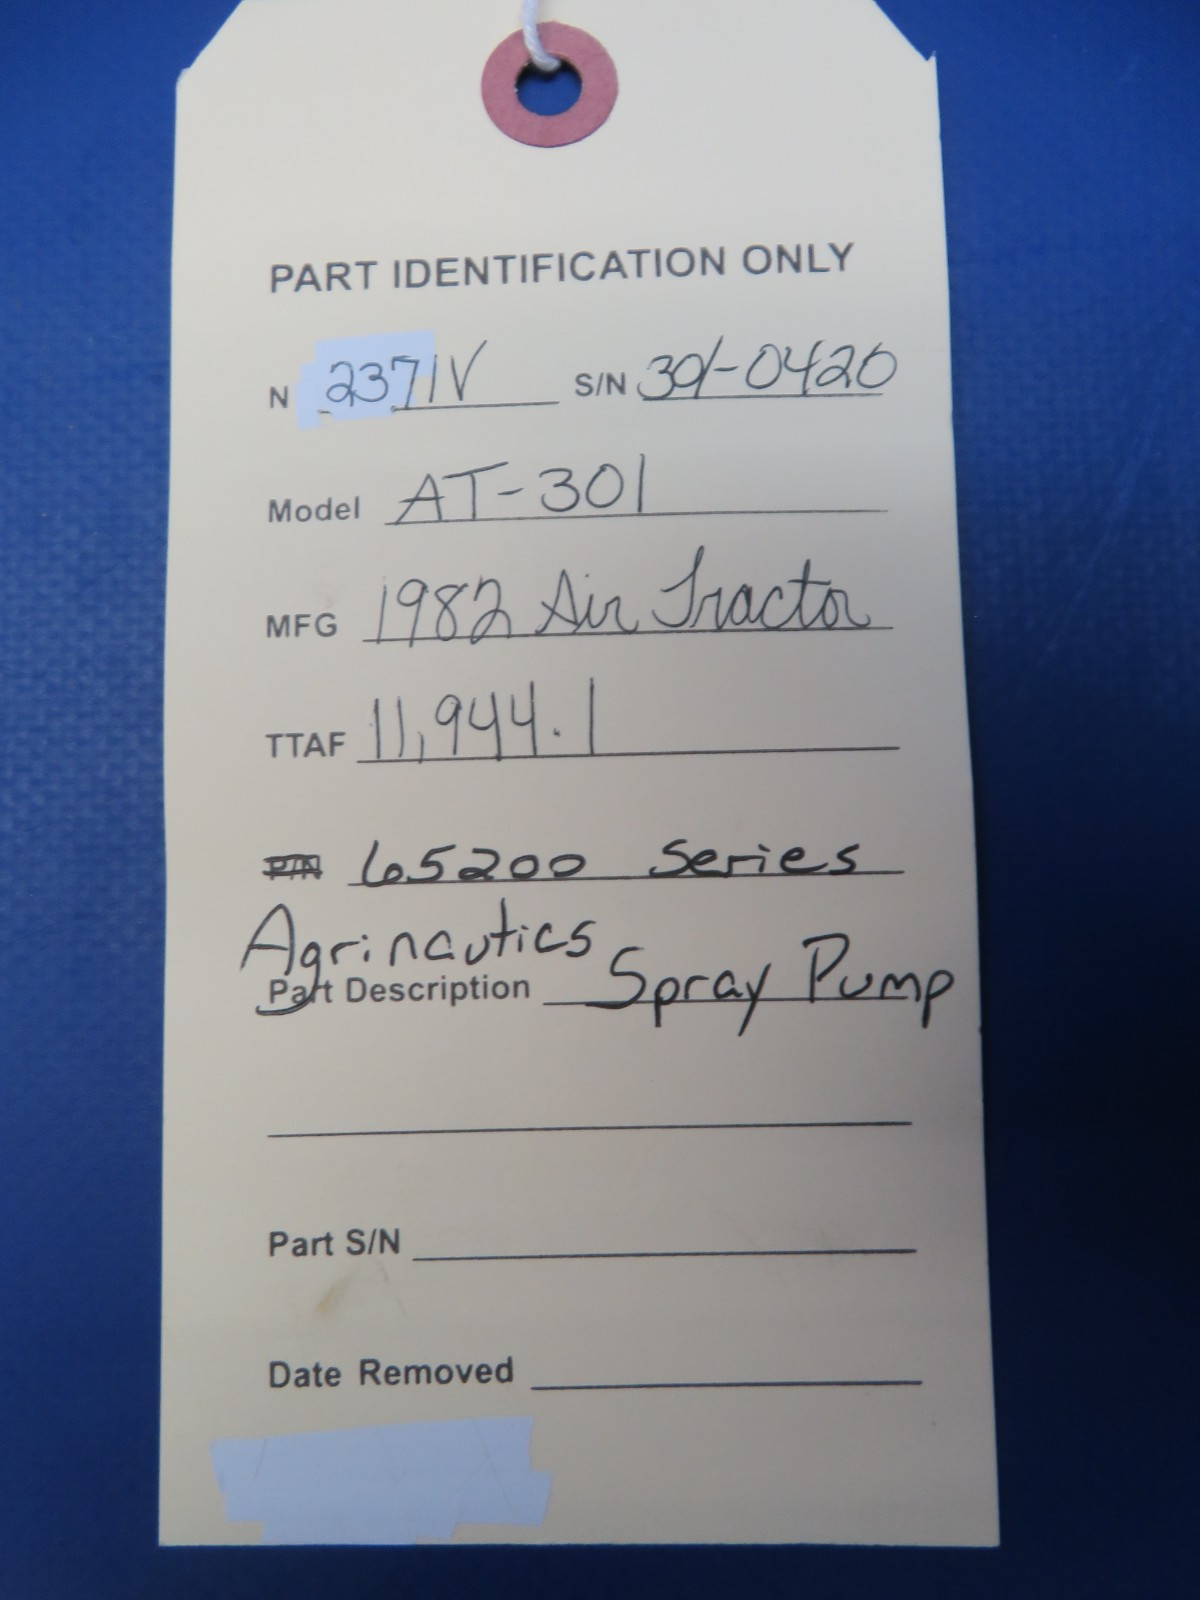 PART IDENTIFICATION ONLY
N 2371V S/N 301-0420
Model AT-301
MFG 1982 Air Tractor
TTAF 11,944.1
P/N 65200 Series
Agrinautics
Part Description Spray Pump
Part S/N
Date Removed